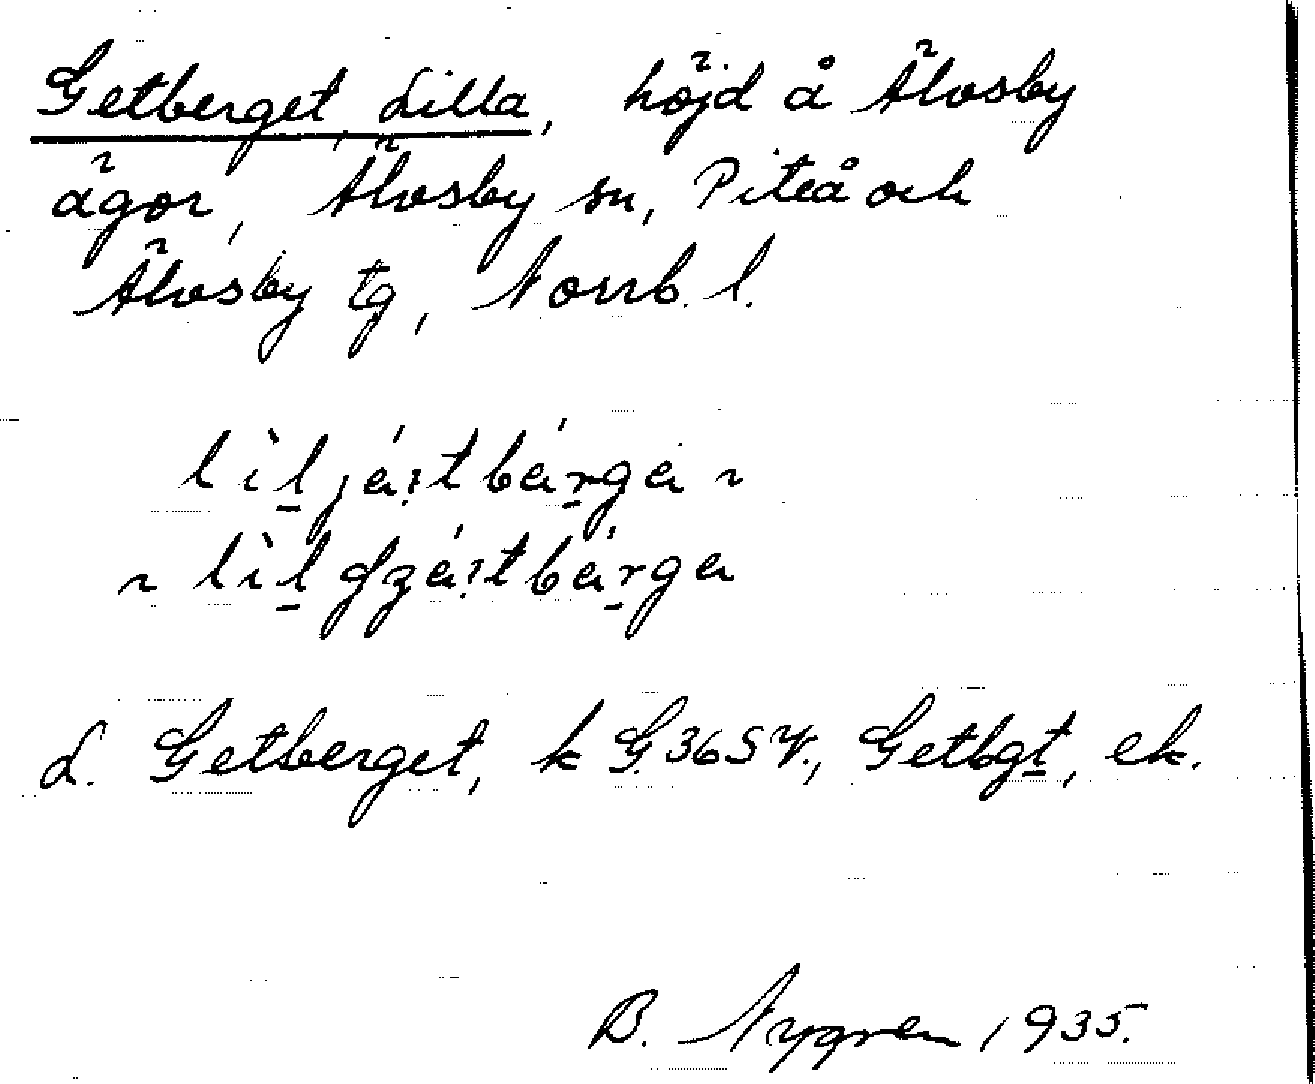 Getberget, Lilla, höjd å Älvsby
ägor, Älvsby sn, Piteå och
Älvsby tg, Norrb. l.
lìljá:tbárga ~
~ lìldzá:tbárga
L. Getberget, k G.3654., Getbgt, ek.
B. Nygren 1935.